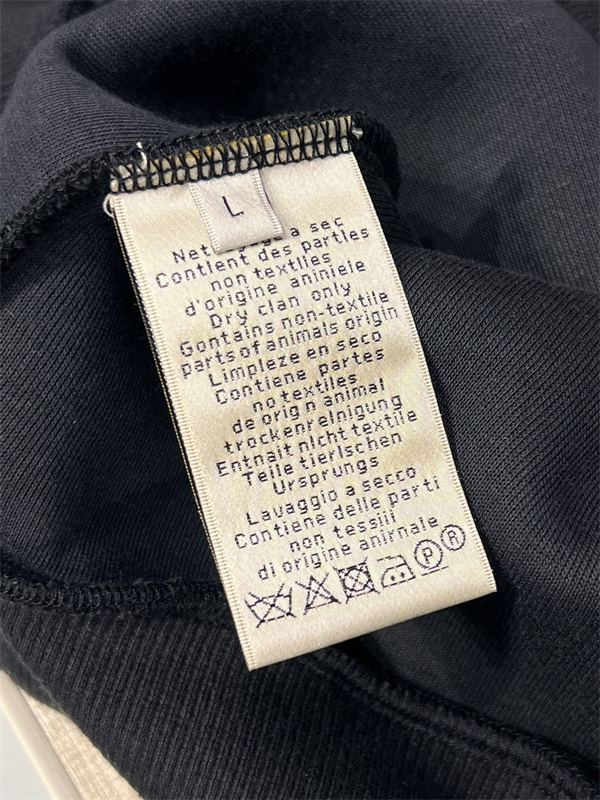 L
a sec
Contient des partles
non textlles
d'origine aniniele
Dry clan only
Gontains non-textile
parts of animals origin
Limpleze en seco
Contiene partes
no textiles
de orig n animal
trockenrelnigung
Entnait nlcht textile
Teile tierlschen
Ursprungs
Lavaggio a secco
Contiene delle parti
non tessiii
di origine anirnale
P R